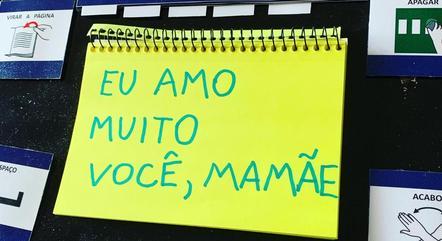 VIRAR A PÁGINA
APAGAR
EU AMO
MUITO
VOCÊ, MAMÃE